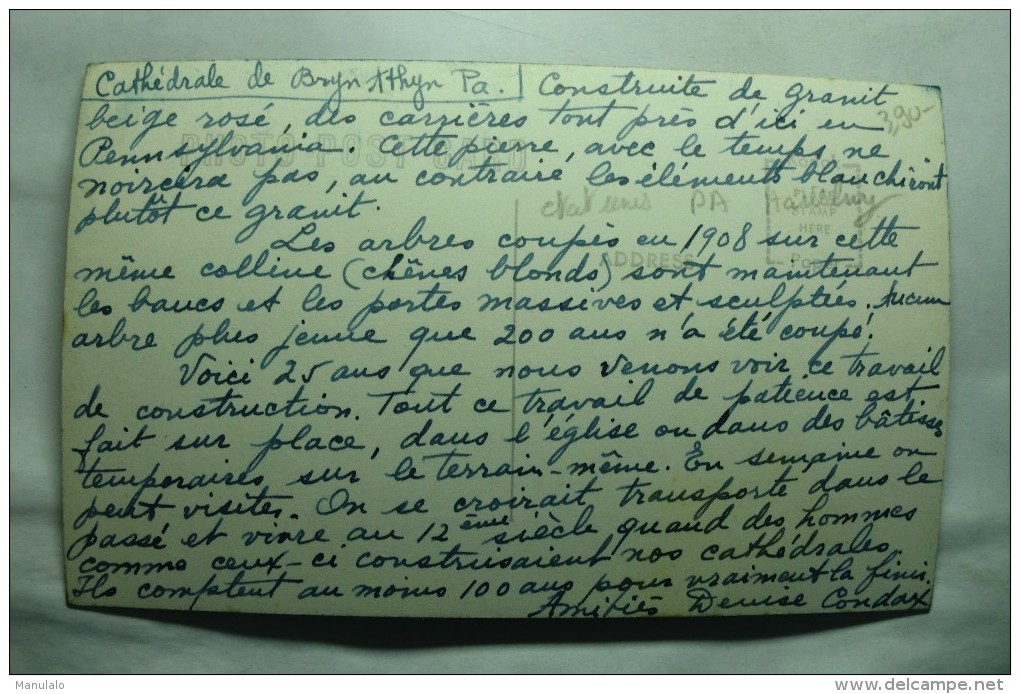 Cathédrale de Bryn Athyn Pa. Construite de granit
beige rosé, des carrières tout près d'ici en
3,90-
Pennsylvania. Cette pierre, avec le temps, ne
PHOTO POST CARD
noircira pas, au contraire les éléments blanchiront
plutôt ce granit.
PA
PLACE
STAMP
HERE
Les arbres coupés en 1908 sur cette
ADDRESS
même colline (chênes blonds) sont maintenant
les bancs et les portes massives et sculptées. Aucun
arbre plus jeune que 200 ans n'a été coupé!
Voici 25 ans que nous venons voir ce travail
de construction. Tout ce travail de patience est
fait sur place, dans l'église ou dans des bâtisses
temporaires sur le terrain-même. En semaine on
peut visiter. On se croirait transporté dans le
passé et vivre au 12ème siècle quand des hommes
comme ceux-ci construisaient nos cathédrales.
Ils comptent au moins 100 ans pour vraiment la finir.
Amitiés Denise Condax
Manulalo
www.delcampe.net